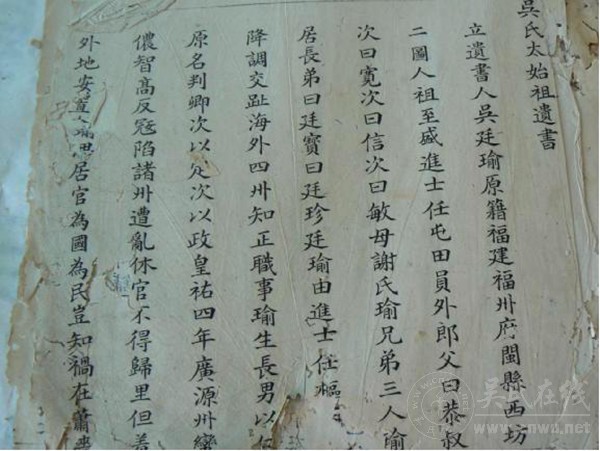 吳氏太始祖遺書
立遺書人吳廷瑜原籍福建福州府閩縣西坊
二圖人祖至盛進士任屯田員外郎父曰恭叔
次曰寬次曰信次曰敏母謝氏瑜兄弟三人瑜
居長弟曰廷寶曰廷珍廷瑜由進士任樞
降調交趾海外四州知正職事瑜生長男以
原名判卿次以定次以政皇祐四年廣源州蠻
儂智高反冦陷諸州遭亂休官不得歸里但
外地安置瑜思居官為國為民豈知禍在蕭
吳氏在线
www.cnwu.net